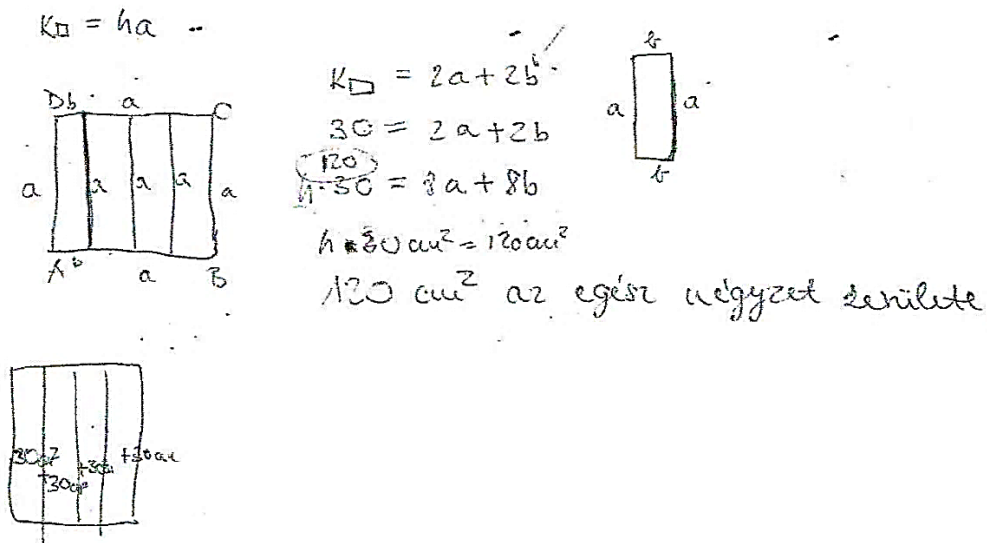 K□ = 4a
Db a C
a a a a a
A b a B
K▭ = 2a + 2b
30 = 2a + 2b
120
4·30 = 8a + 8b
4·30 cm² = 120 cm²
120 cm² az egész négyzet területe
b
a a
b
30cm² +30cm +30cm
+30cm²